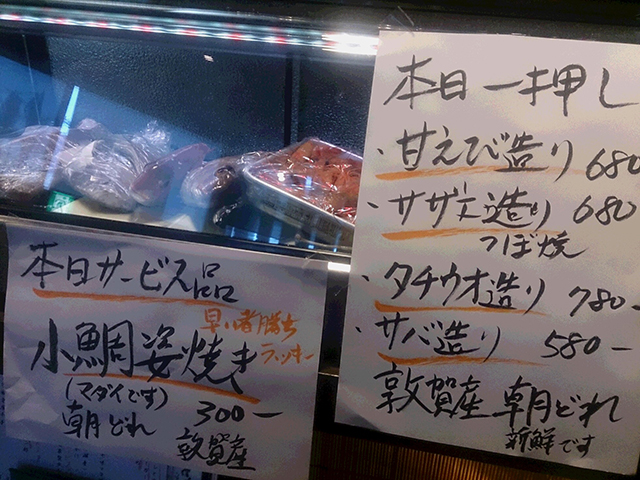 本日サービス品
早い者勝ち
ラッキー
小鯛姿焼き
(マダイです)
朝どれ 300-
敦賀産
本日一押し
・甘えび造り 680
・サザエ造り 680
つぼ焼
・タチウオ造り 780-
・サバ造り 580-
敦賀産 朝どれ
新鮮です